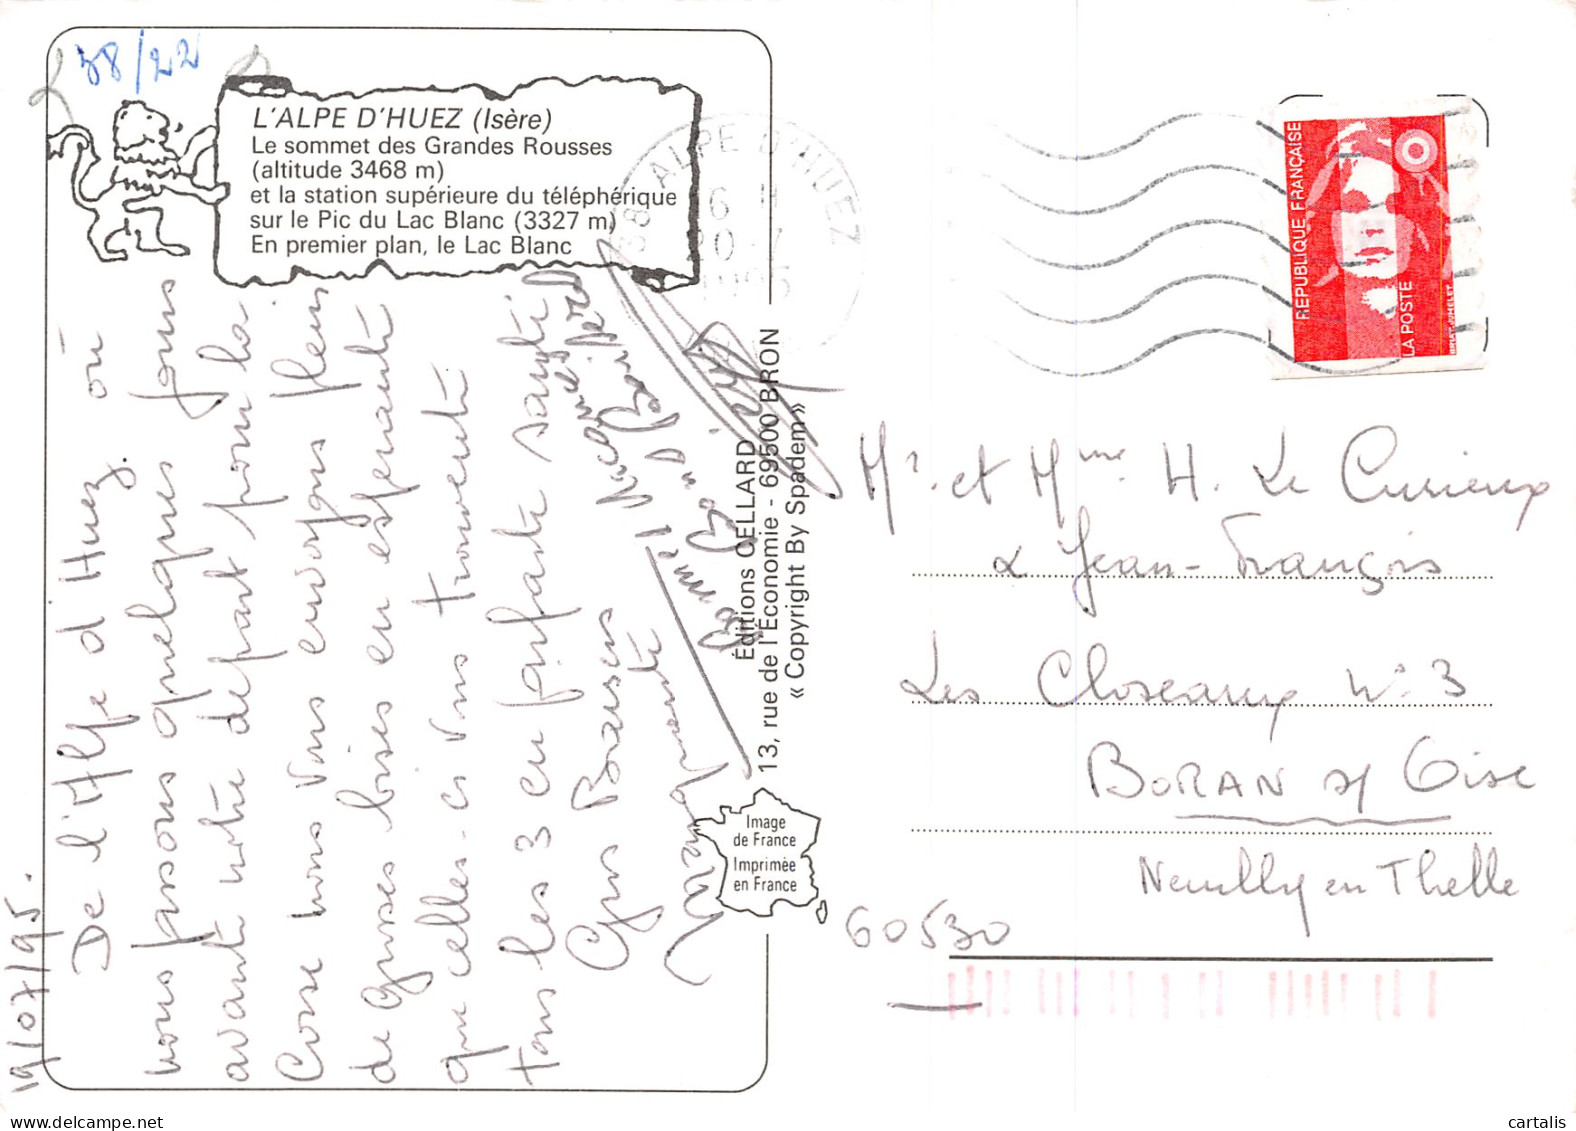 38/22
L'ALPE D'HUEZ (Isère)
Le sommet des Grandes Rousses
(altitude 3468 m)
et la station supérieure du téléphérique
sur le Pic du Lac Blanc (3327 m)
En premier plan, le Lac Blanc
38 ALPE D'HUEZ
16 H
20-7
1995
RÉPUBLIQUE FRANÇAISE
LA POSTE
19/07/95.
De l'Alpe d'Huez où
nous passons quelques jours
avant notre départ pour la
Corse nous vous envoyons pleins
de grosses bises en espérant
que celles-ci vous trouvent
tous les 3 en parfaite santé
Gros Baisers
Marguerite
Éditions CELLARD
13, rue de l'Économie - 69500 BRON
« Copyright By Spadem»
Image
de France
Imprimée
en France
Mr. et Mme H. Le Curieux
& Jean-François
Les Closeaux N° 3
BORAN s/ Oise
Neuilly en Thelle
60530